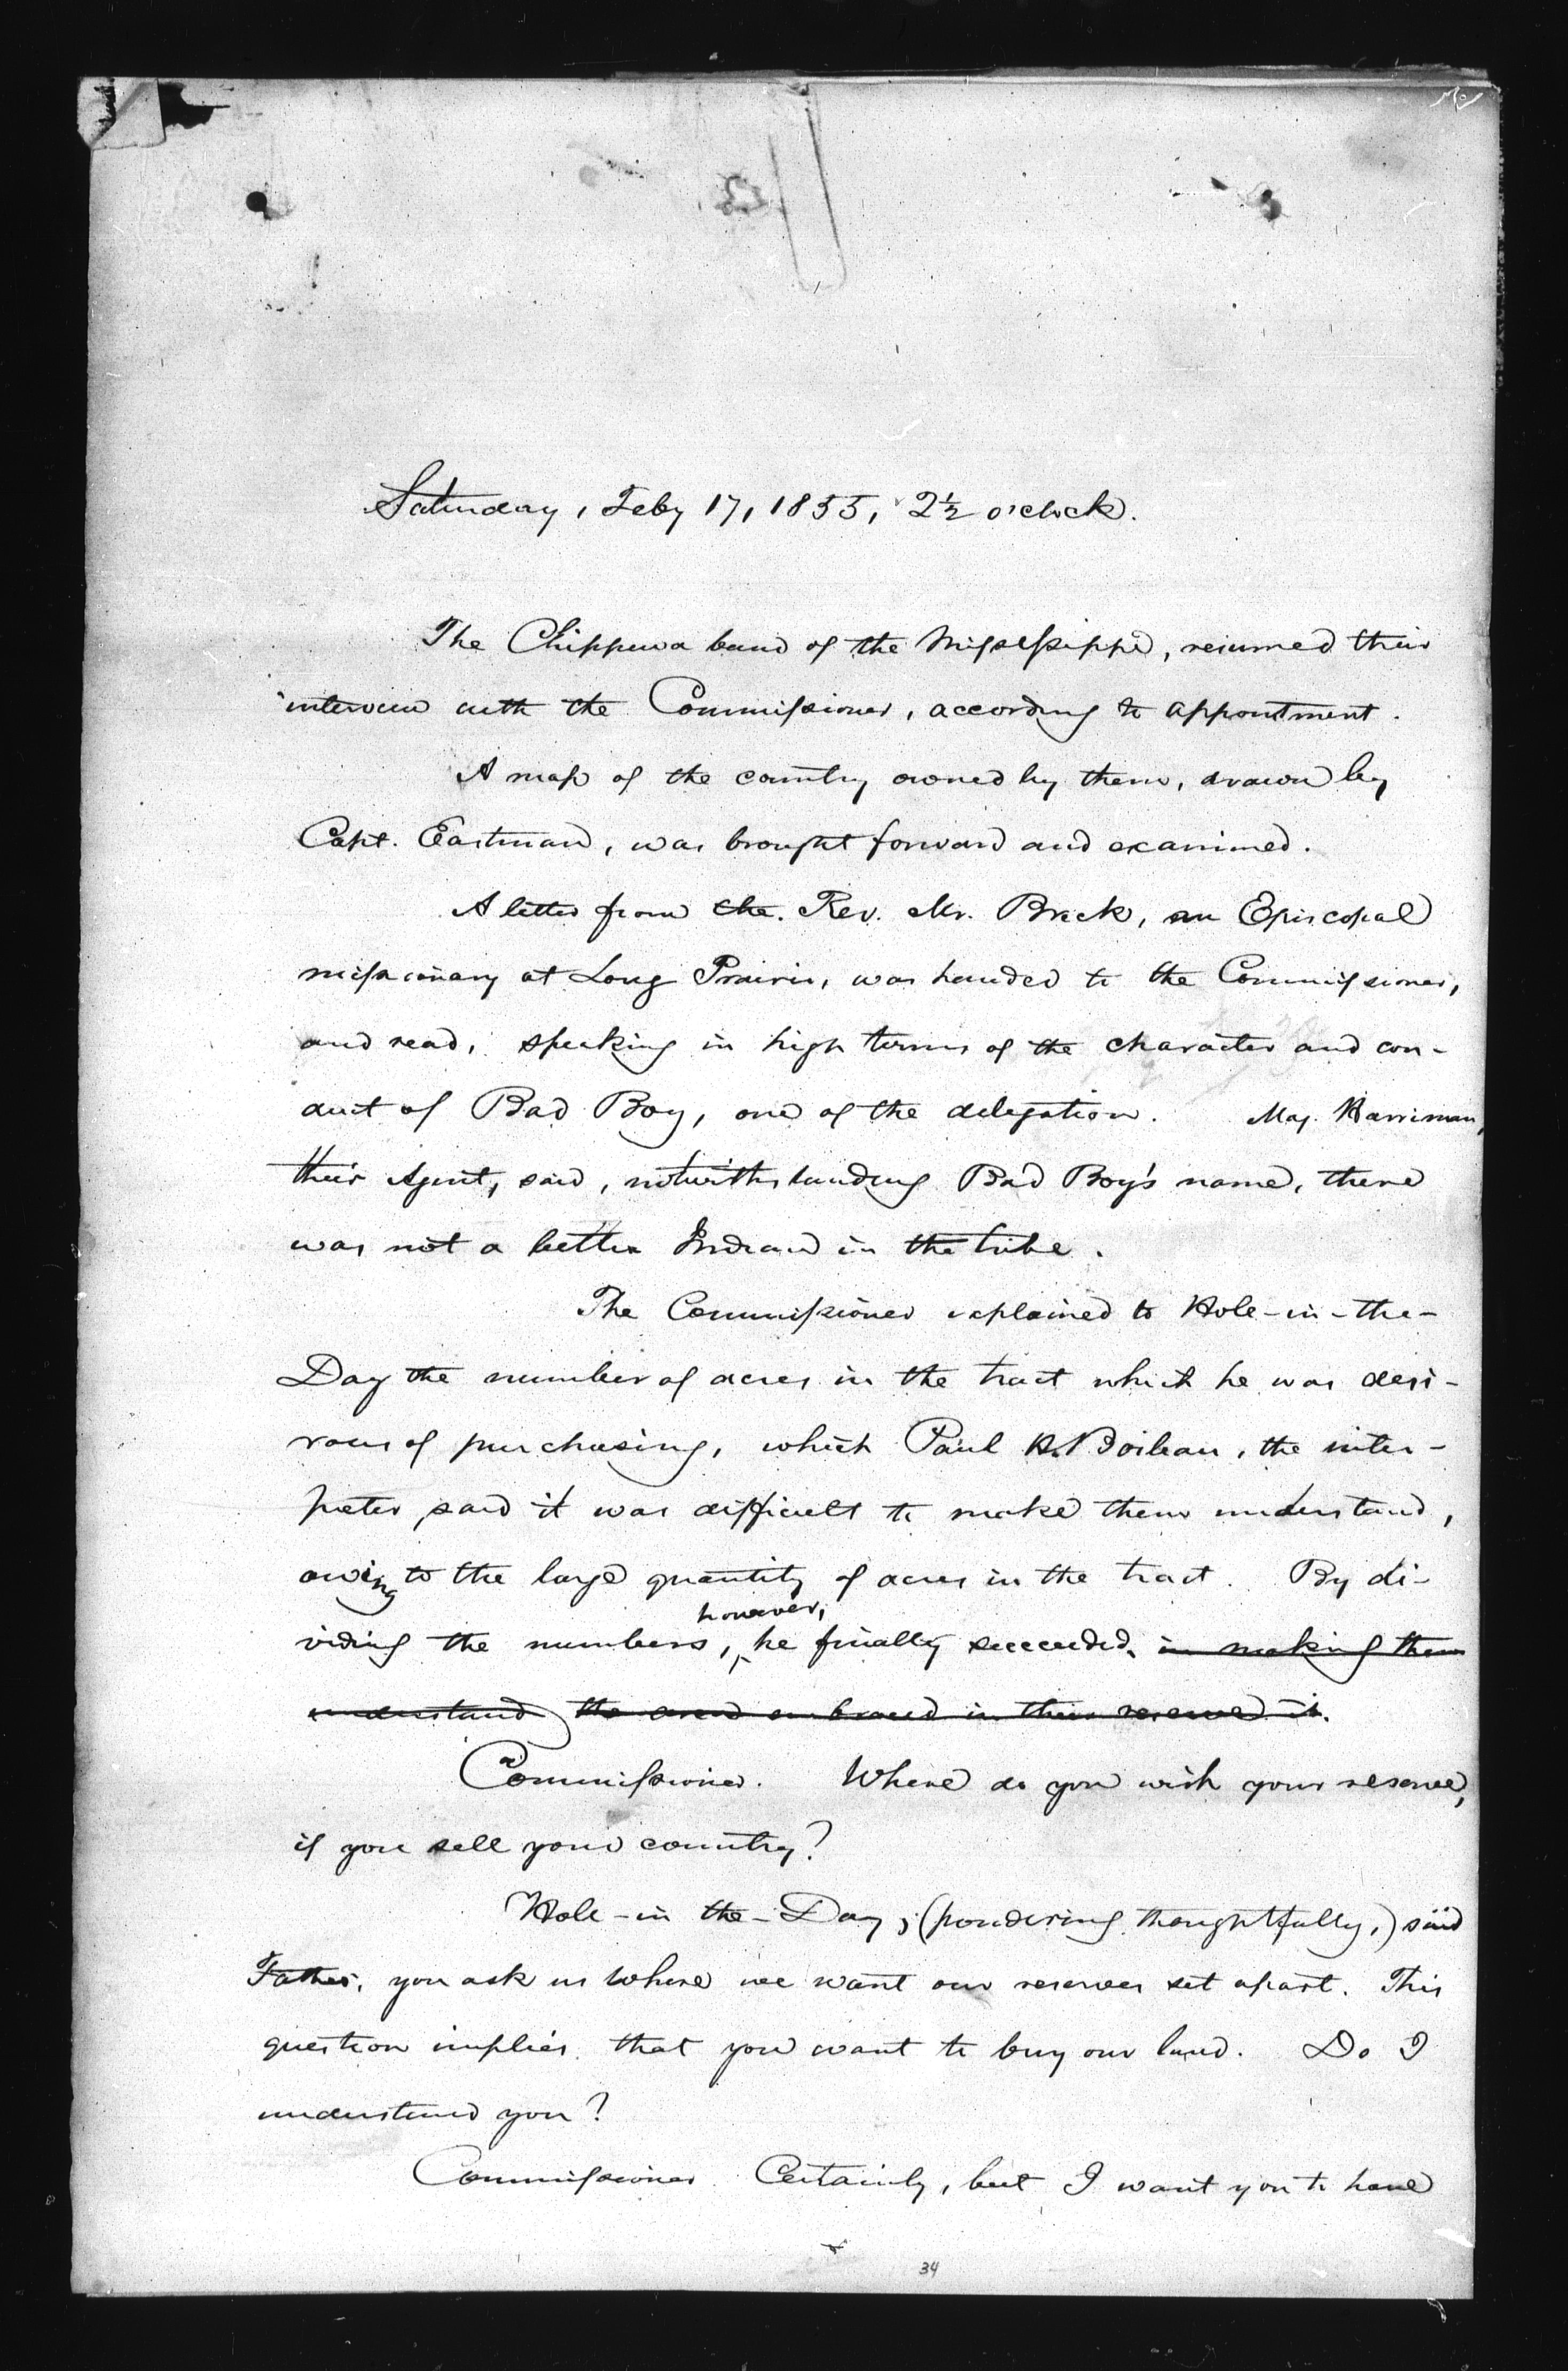 Saturday, Feby 17, 1855, 2½ o'clock.
The Chippewa band of the Mississippi, resumed their
interview with the Commissioner, according to appointment.
A map of the country owned by them, drawn by
Capt. Eastman, was brought forward and examined.
A letter from the Rev. Mr. Breck, an Episcopal
missionary at Long Prairie, was handed to the Commissioner,
and read, speaking in high terms of the character and con-
duct of Bad Boy, one of the delegation. Maj. Harriman,
their Agent, said, notwithstanding Bad Boy's name, there
was not a better Indian in the tribe.
The Commissioner explained to Hole-in-the-
Day the number of acres in the tract which he was desi-
rous of purchasing, which Paul H. Boileau, the inter-
preter, said it was difficult to make them understand,
owing to the large quantity of acres in the tract. By di-
however,
viding the numbers, he finally succeeded, in making them
understand the area embraced in their reserved it.
Commissioner. Where do you wish your reserve,
if you sell your country?
Hole-in the-Day, (pondering thoughtfully,) said
Father, you ask us where we want our reserves set apart. This
question implies that you want to buy our land. Do I
understand you?
Commissioner Certainly, but I want you to have
34